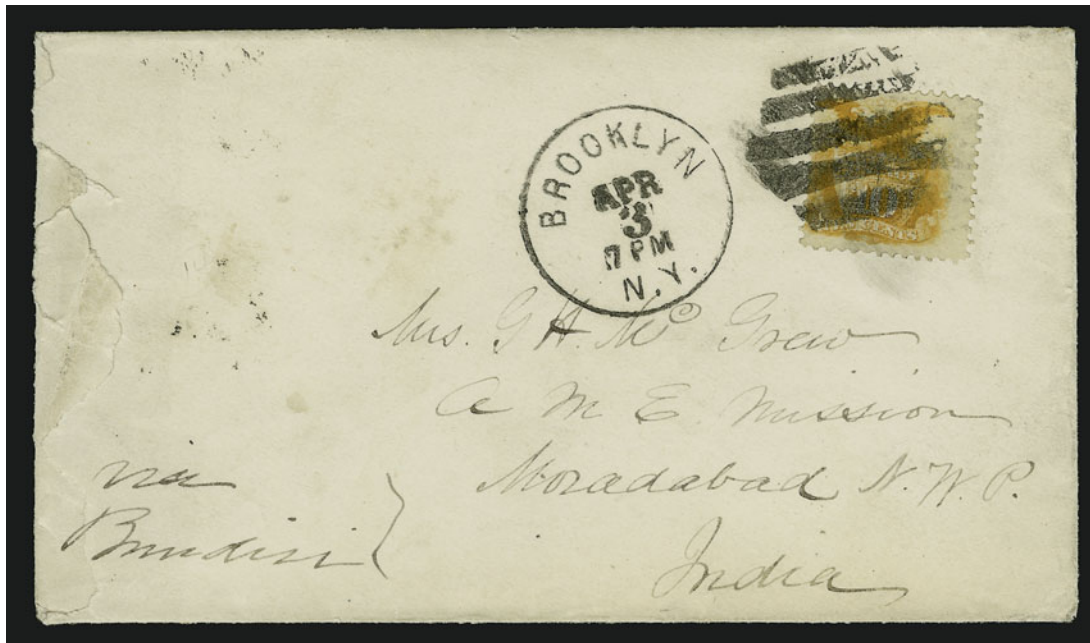 BROOKLYN
APR
3
7 PM
N.Y.
10
Mrs. G H. Mc Grew
A M E Mission
Moradabad N. W. P.
India
via
Brindisi